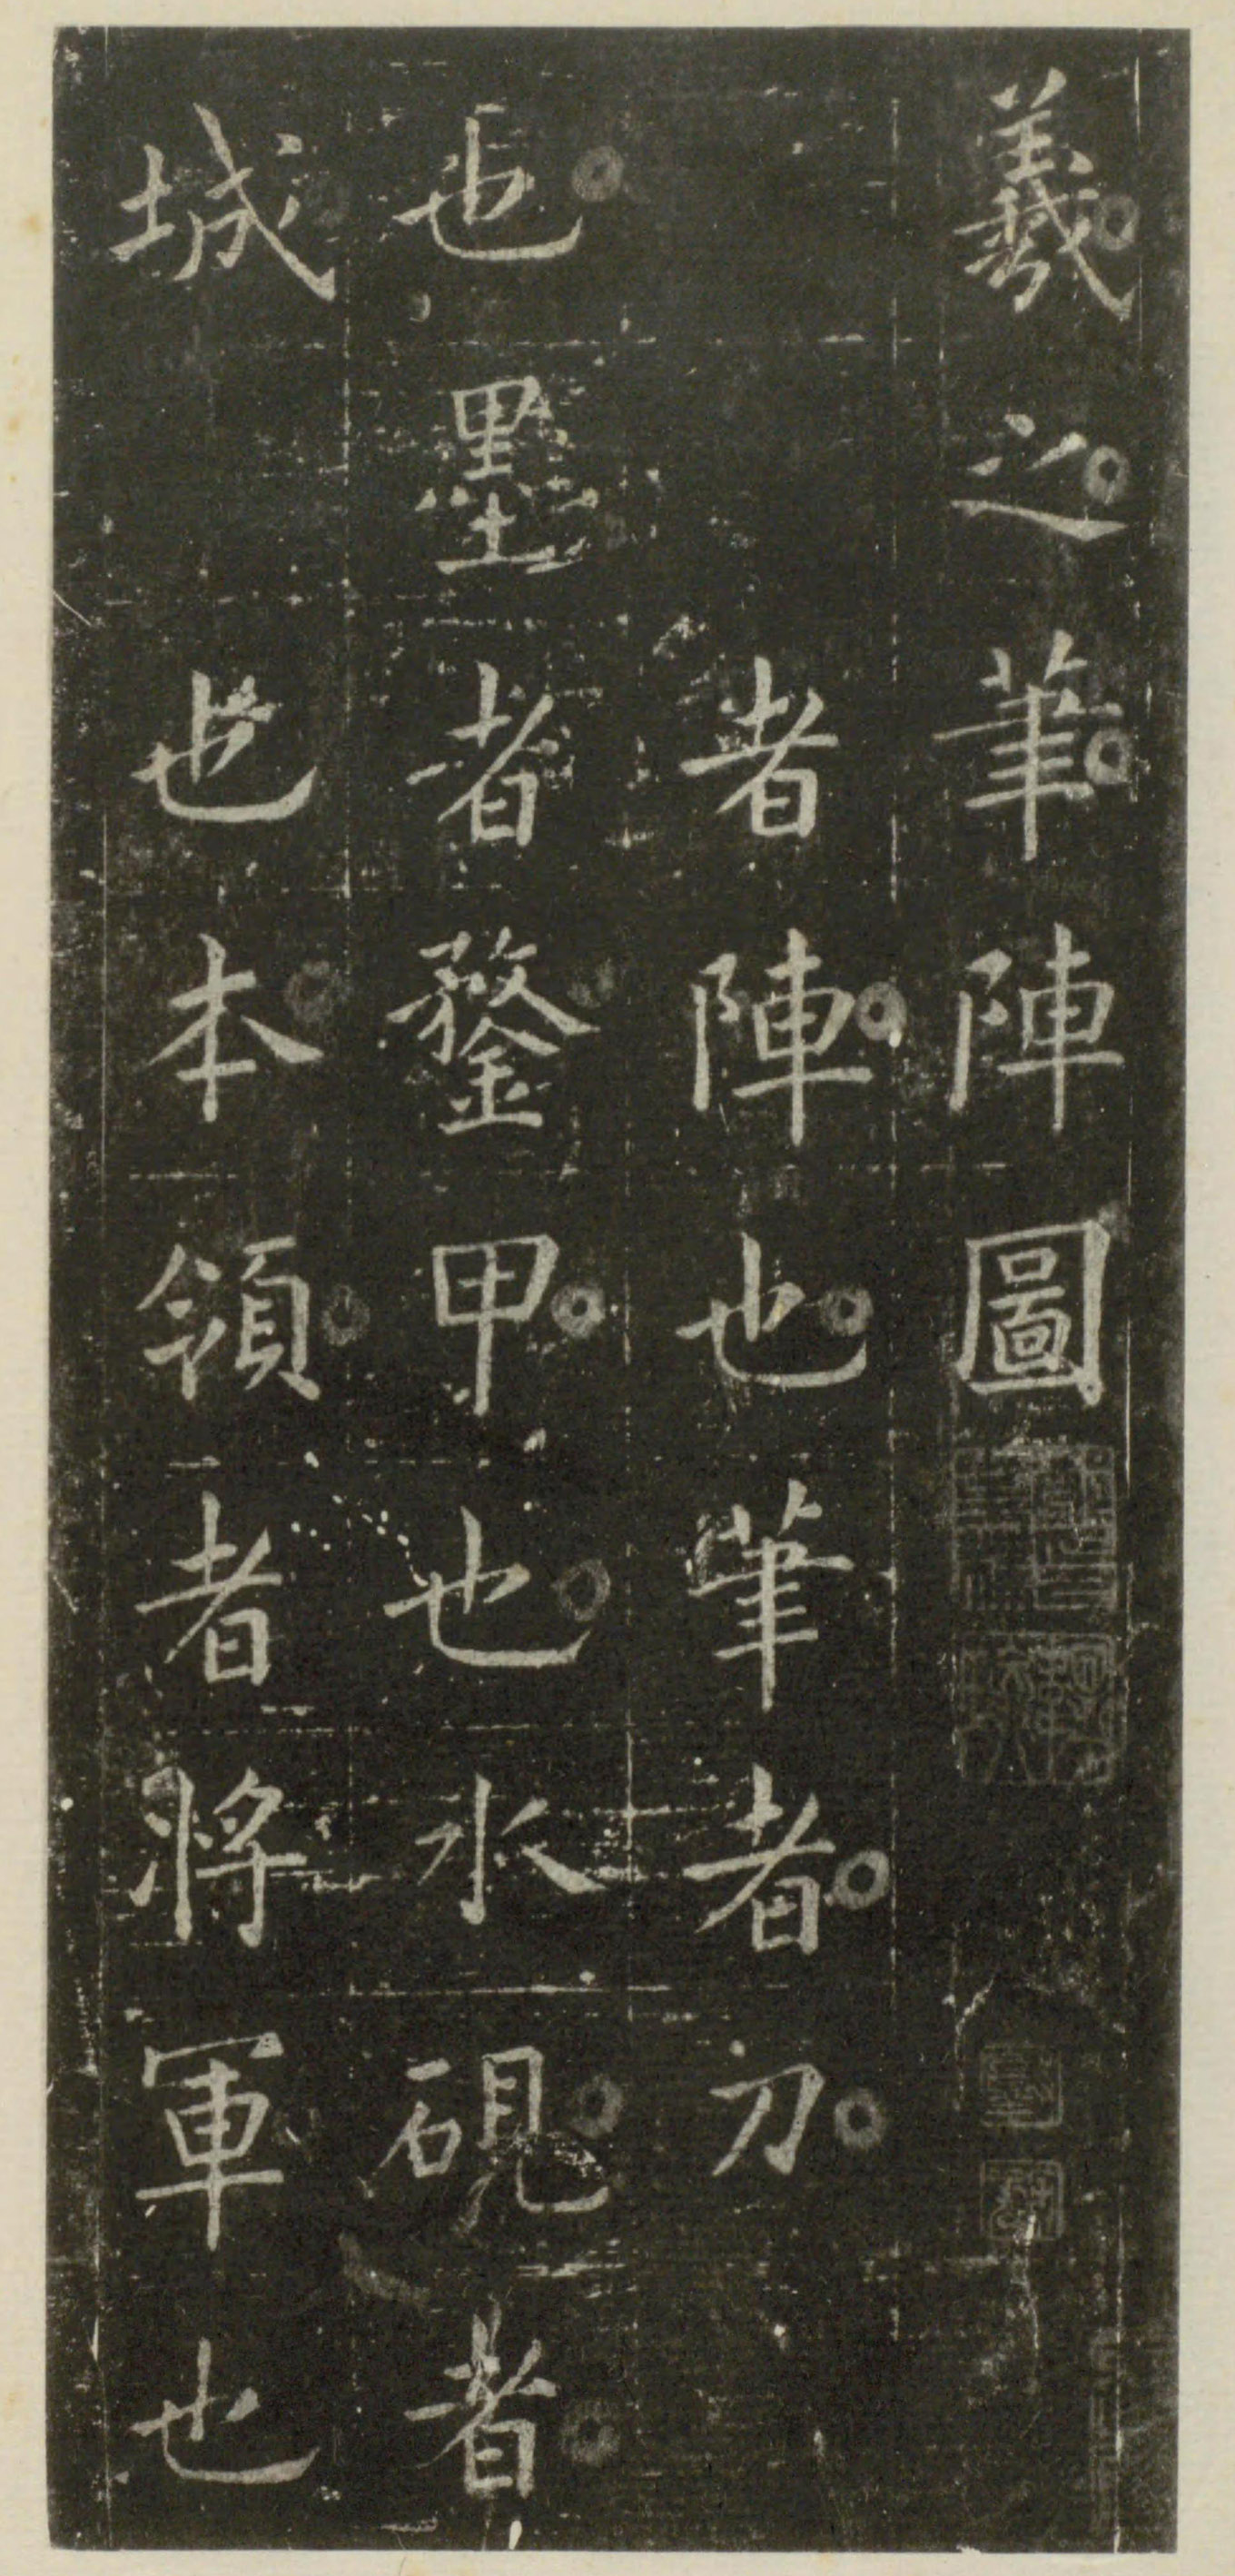 羲之筆陣圖
者陣也筆者刀
也墨者鍪甲也水硯者
城也本領者將軍也